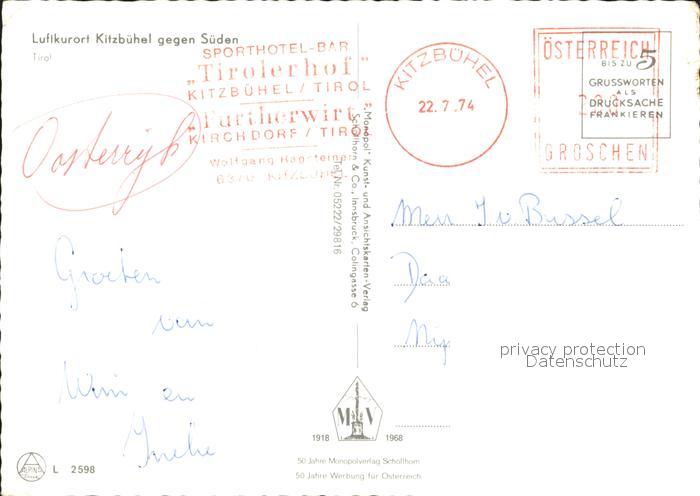 Luftkurort Kitzbühel gegen Süden
Tirol
SPORTHOTEL-BAR
„Tirolerhof"
KITZBÜHEL / TIROL
„Furtherwirt"
KIRCHDORF / TIROL
Wolfgang Hagsteiner
6370 KITZBÜHEL
Tel. Nr. 05222/29816
KITZBÜHEL
22.7.74
ÖSTERREICH
GROSCHEN
BIS ZU 5
GRUSSWORTEN
ALS
DRUCKSACHE
FRANKIEREN
Oosterrijk
Monopol- Kunst- und Ansichtskarten-Verlag
Schöllhorn & Co., Innsbruck, Colingasse 6
Groeten
van
Wim en
Ineke
L 2598
ALPINA
v. Bussel
privacy protection
Datenschutz
M V
1918 1968
50 Jahre Monopolverlag Schöllhorn
50 Jahre Werbung für Österreich